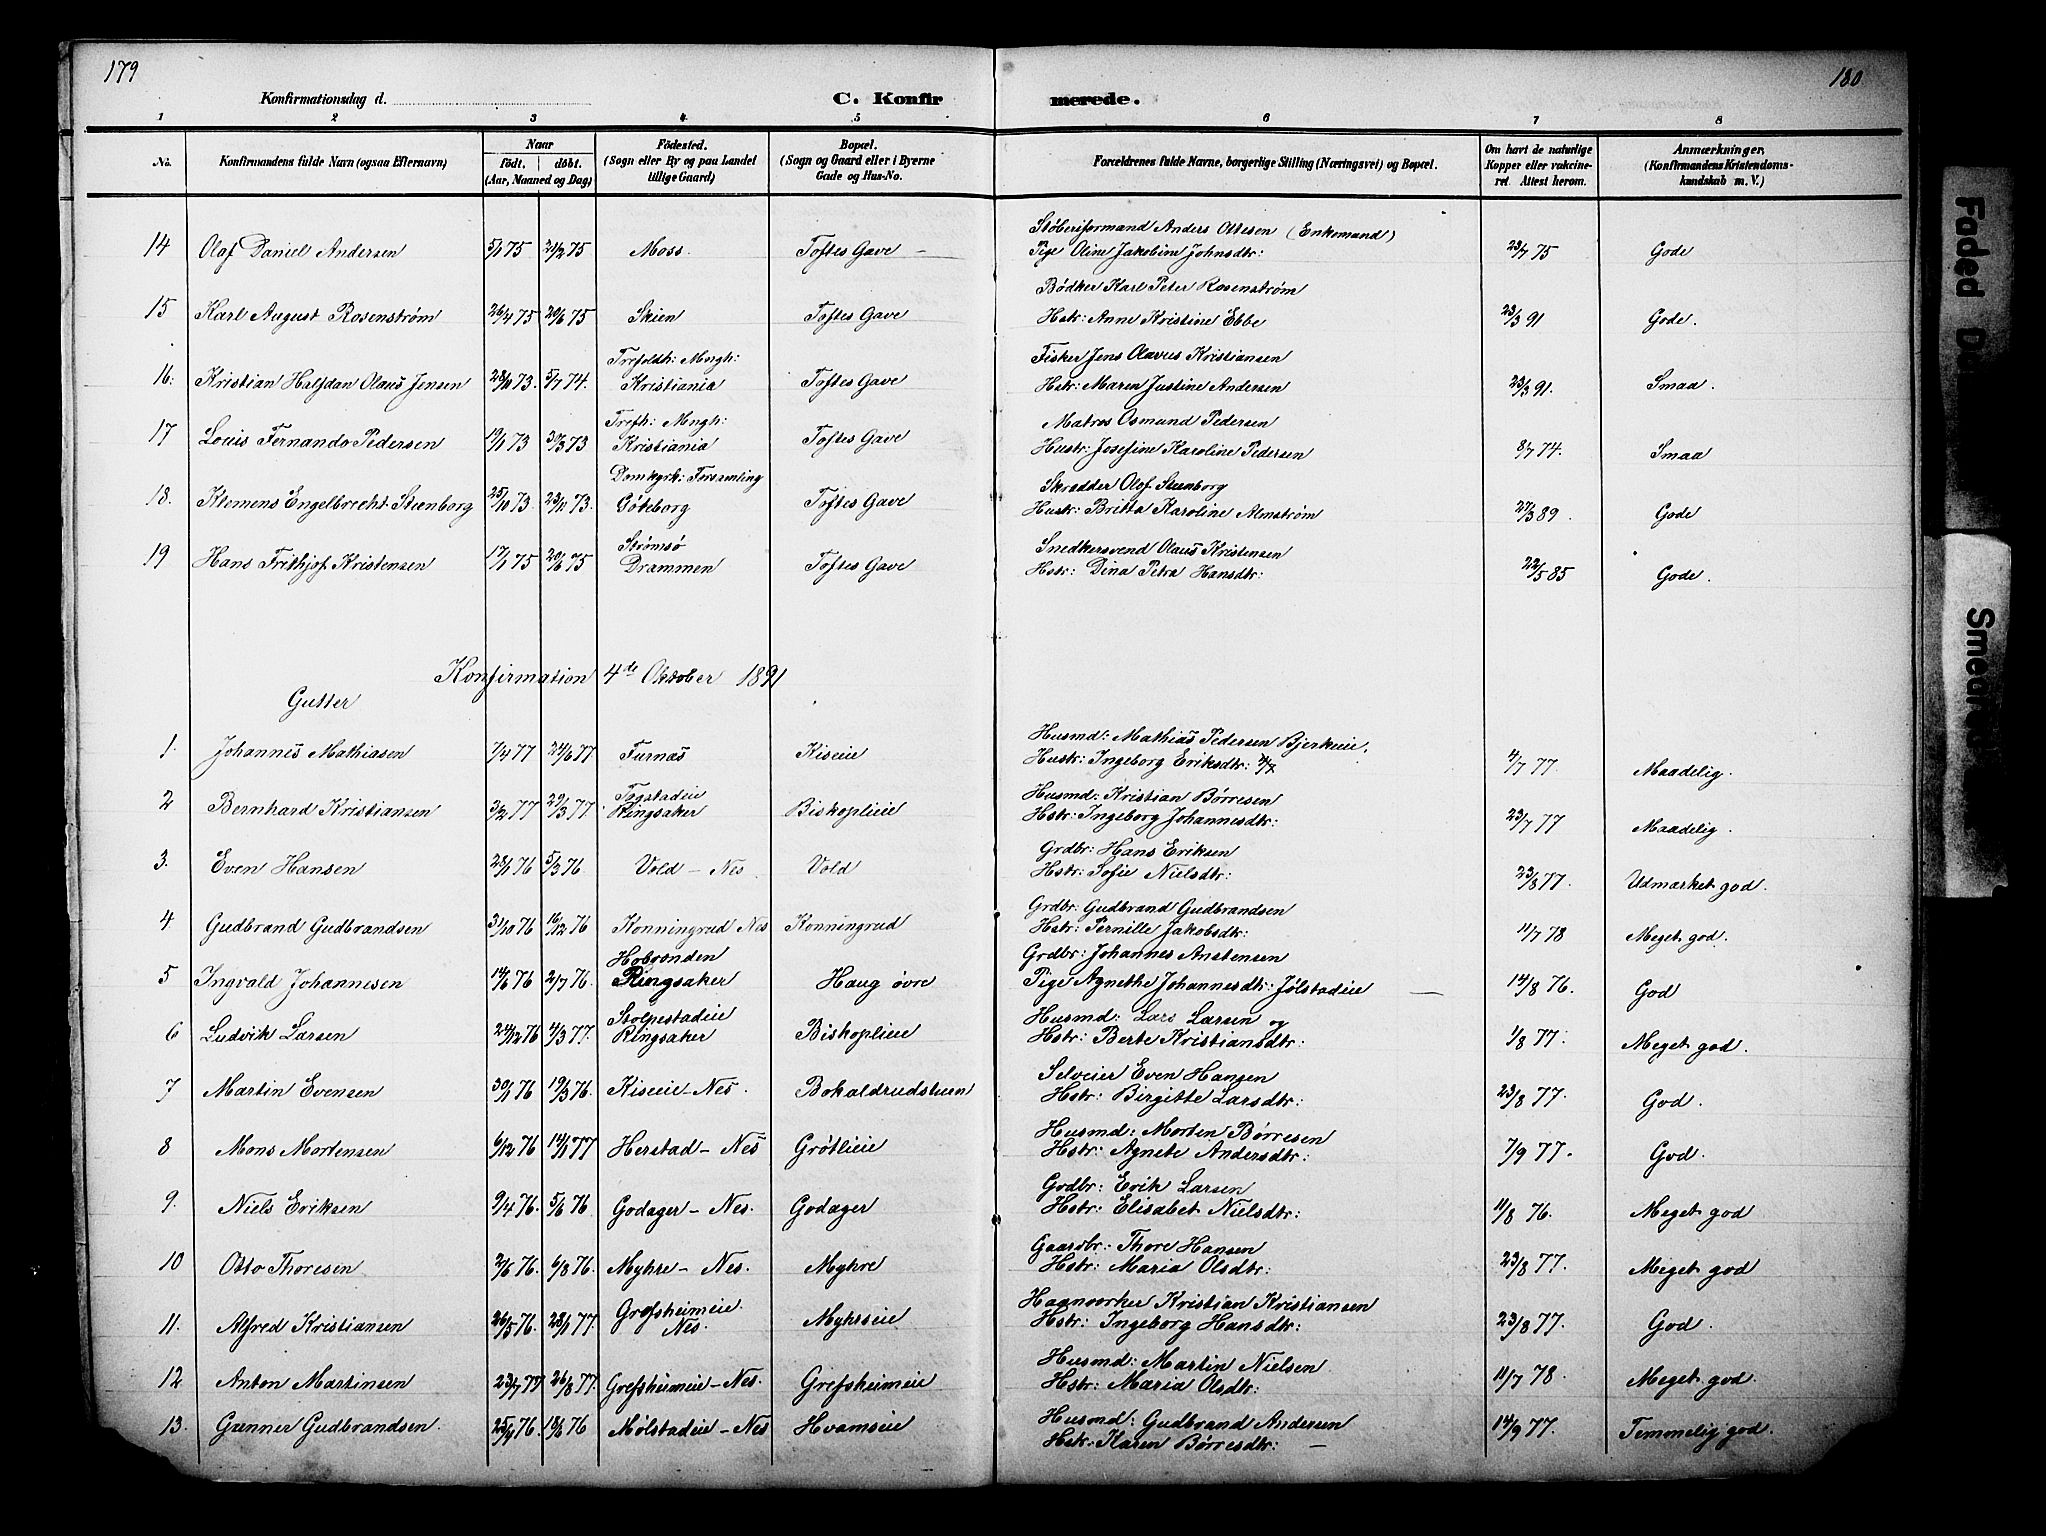 179
180
Konfirmationsdag d.
C. Konfirmerede.
1 2 3 4 5 6 7 8
No. Konfirmandens fulde Navn (ogsaa Efternavn) Naar født. døbt. (Aar, Maaned og Dag) Fødested. (Sogn eller By og paa Landet tillige Gaard) Bopæl. (Sogn og Gaard eller i Byerne Gade og Hus-No. Forældrenes fulde Navne, borgerlige Stilling (Næringsvei) og Bopæl. Om havt de naturlige Kopper eller vakcineret. Attest herom. Anmærkninger. (Konfirmandens Kristendomskundskab m. V.)
Støberiformand Anders Olsen (Enkemand)
14 Olaf Daniel Andersen 5/1 75 21/2 75 Moss. Toftes Gave — Pige Oline Jakobine Johnsdtr: 23/7 75 Gode
Bødker Karl Peter Rosenstrøm
15 Karl August Rosenstrøm 26/4 75 20/6 75 Skien Toftes Gave Hstr: Anne Kristine Ebbe 23/3 91 Gode.
Trefoldh: Mngh: Fisker Jens Olavus Kristiansen
16. Kristian Halfdan Olaus Jensen 28/10 73. 5/7 74. Kristiania Toftes Gave Hstr: Maren Justine Andersen 23/3 91. Smaa.
Trefh: Mngh: Matros Osmund Pedersen
17 Louis Fernando Pedersen 19/1 73 30/3 73 Kristiania Toftes Gave Hustr: Josefine Karoline Pedersen 8/7 74. Smaa
Domkyrk: Forsamling Skrædder Olof Steenborg
18. Klemens Engelbrecht Steenborg 25/10 73. 23/11 73. Göteborg Toftes Gave Hustr: Britta Karoline Almstrøm 27/3 89. Gode
Strømsø Snedkersvend Olaus Kristensen
19 Hans Frithjof Kristensen 17/1 75 20/6 75 Drammen Toftes Gave Hstr: Dina Petra Hansdtr: 22/5 85 Gode.
Konfirmation 4de Oktober 1891
Gutter
Husmd: Mathias Pedersen Bjerkeie.
1. Johannes Mathiasen 7/4 77 24/6 77 Furnæs Kiseie Hustr: Ingeborg Eriksdtr: 4/7 77. Maadelig.
Togstadeie Husmd: Kristian Børresen
2 Bernhard Kristiansen 3/2 77 29/3 77. Ringsaker Biskoplieie Hstr: Ingeborg Johannesdtr: 23/7 77 Maadelig.
Grdbr: Hans Eriksen
3. Even Hansen 28/1 76 5/3 76 Vold – Nes. Vold Hstr: Sofie Nielsdtr: 23/8 77. Udmærket god.
Grdbr: Gudbrand Gudbrandsen
4 Gudbrand Gudbrandsen 31/10 76 16/12 76 Konningrud Nes Konningrud Hstr: Pernille Jakobsdtr: 11/7 78 Meget god.
Grdbr: Johannes Anstensen
5 Ingvald Johannesen 14/6 76 2/7 76. Ringsaker Haug øvre Pige Agnethe Johannesdtr: Jølstadeie — 14/8 76. God
Stolpestadeie Husmd: Lars Larsen og
6 Ludvik Larsen 24/12 76 4/3 77. Ringsaker Biskoplieie Hstr: Berte Kristiansdtr: 1/8 77. Meget god.
Selveier Even Hansen
7 Martin Evensen 30/1 76 19/3 76. Kiseie – Nes. Bokaldrudstuen Hstr: Birgitte Larsdtr: 23/8 77. God.
Husmd: Morten Børresen
8 Mons Mortensen 6/12 76 14/1 77 Herstad – Nes Grøtlieie Hstr: Agnete Andersdtr: 7/9 77. God.
Grdbr: Erik Larsen
9. Niels Eriksen 9/4 76. 5/6 76 Godager – Nes. Godager Hstr: Elisabet Nielsdtr: 11/8 76. Meget god
Gaardbr: Thore Hansen
10 Otto Thoresen 2/6 76. 6/8 76 Myhre – Nes. Myhre Hstr: Maria Olsdtr: 23/8 77. Meget god
Grefsheimeie. Haandværker Kristian Kristiansen
11. Alfred Kristiansen 26/5 76. 28/1 77. Nes. Myhrseie Hstr: Ingeborg Hansdtr: 23/8 77. God.
Husmd: Martin Nielsen
12 Anton Martinsen 23/7 77 26/8 77. Grefsheimeie – Nes. Grefsheimeie Hstr: Maria Olsdtr: 11/7 78. Meget god.
Husmd: Gudbrand Andersen
13. Gunner Gudbrandsen. 25/4 76. 18/6 76 Mølstadeie – Nes Hvamseie Hstr: Karen Børresdtr: — 14/9 77. Temmelig god.
Faded